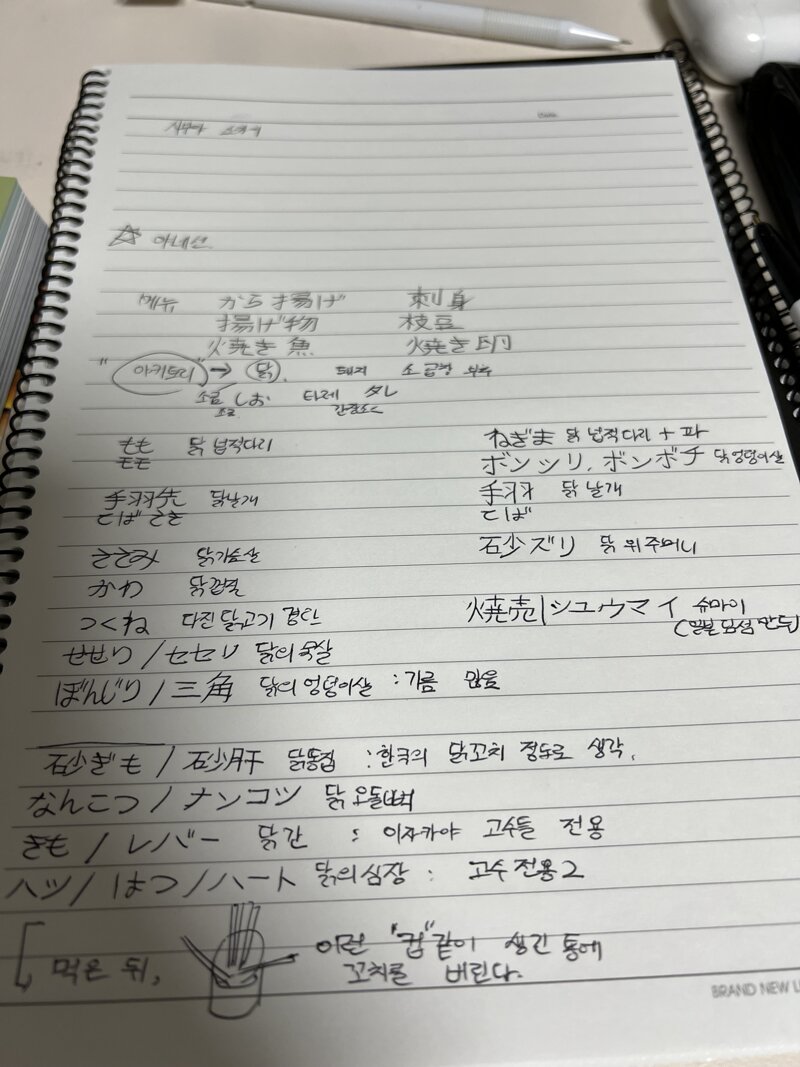 ☆ 아네선
메뉴 から揚げ 刺身
揚げ物 枝豆
焼き魚 焼き印
"야키토리" → 닭. 돼지 소 곱창 부추
소금 しお 타레 タレ
소금 간장소스
もも 닭 넙적다리 ねぎま 닭 넙적다리 + 파
モモ ボンシリ, ボンボチ 닭 엉덩이살
手羽先 닭날개 手羽 닭 날개
てばさき てば
ささみ 닭가슴살 石少ズリ 닭 위주머니
かわ 닭껍질
つくね 다진 닭고기 경단 焼売 | シュウマイ 슈마이
(일본 딤섬 만두)
せせり / セセリ 닭의 목살
ぼんじり / 三角 닭의 엉덩이살 : 기름 많음
砂ぎも / 砂肝 닭똥집 : 한국의 닭꼬치 정도로 생각.
なんこつ / ナンコツ 닭 오돌뼈
きも / レバー 닭간 : 이자카야 고수들 전용
ハツ / はつ / ハート 닭의 심장 : 고수 전용 2
먹은 뒤, 이런 "컵"같이 생긴 통에
꼬치를 버린다.
BRAND NEW L